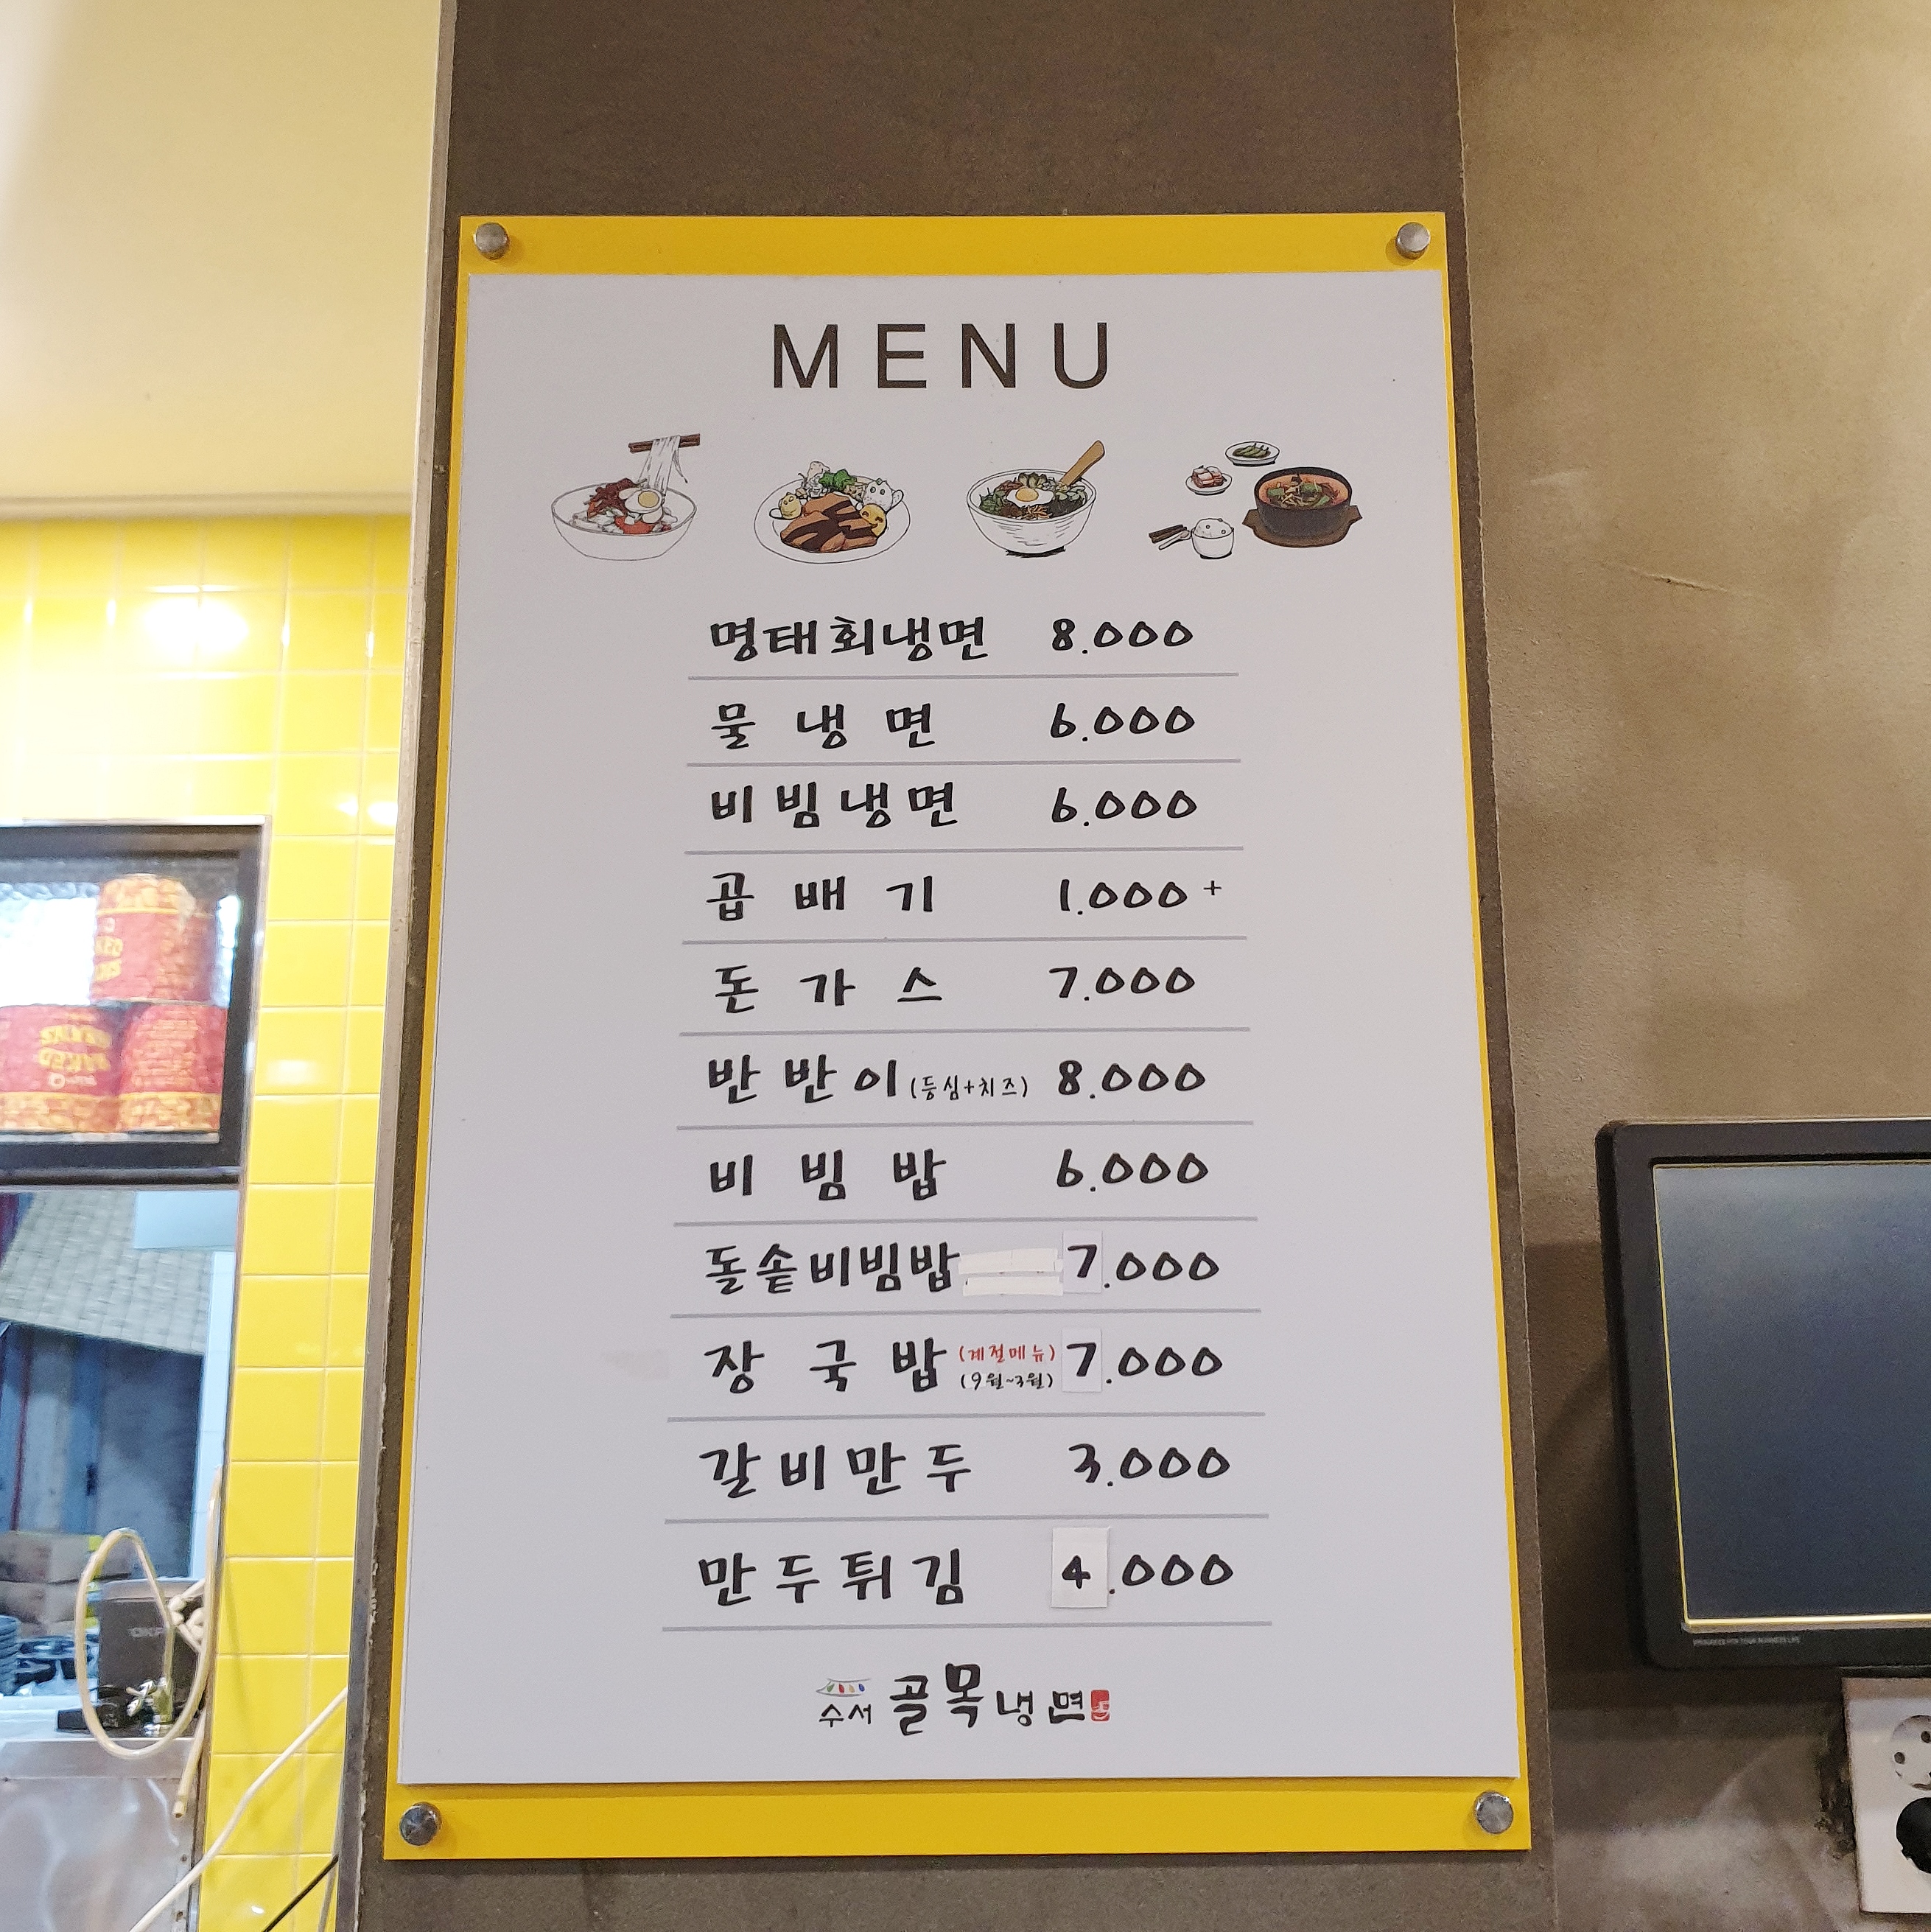 MENU
명태회냉면 8.000
물냉면 6.000
비빔냉면 6.000
곱배기 1.000+
돈가스 7.000
반반이(등심+치즈) 8.000
비빔밥 6.000
돌솥비빔밥 7.000
장국밥 (계절메뉴) 7.000
(9월~3월)
갈비만두 3.000
만두튀김 4.000
수서 골목냉면